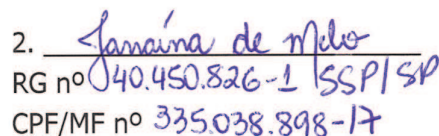 2. Janaína de Melo
RG nº 40.450.826-1 SSP/SP
CPF/MF nº 335.038.898-17